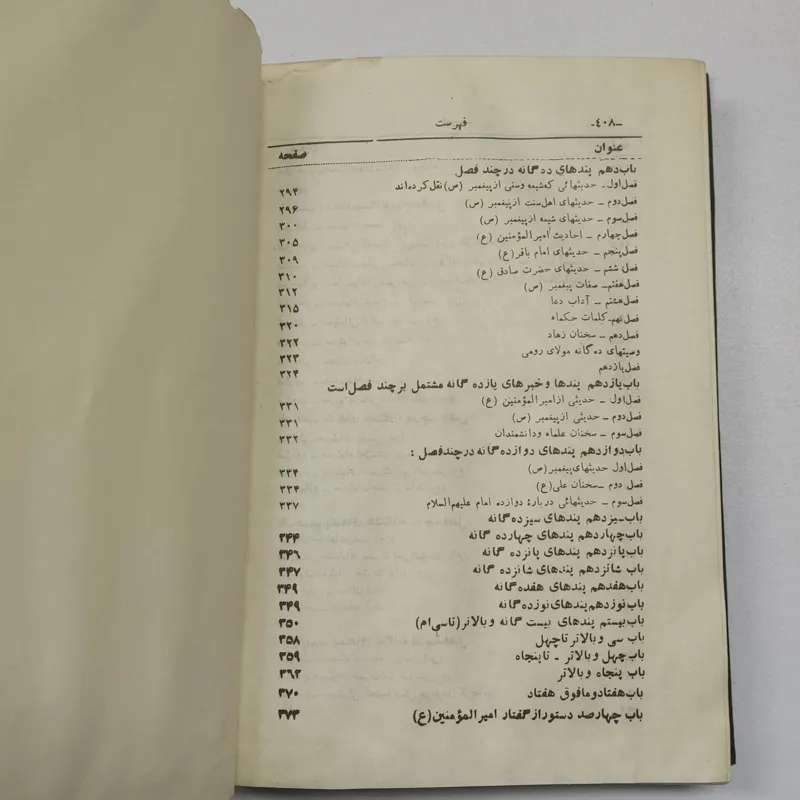 ـ۴۰۸ـ
فهرست
عنوان
صفحه
باب دهم پندهای ده گانه در چند فصل
فصل اول ـ حدیثهائی که شیعه و سنی از پیغمبر (ص) نقل کرده اند ۲۹۴
فصل دوم ـ حدیثهای اهل سنت از پیغمبر (ص) ۲۹۶
فصل سوم ـ حدیثهای شیعه از پیغمبر (ص) ۳۰۰
فصل چهارم ـ احادیث امیر المؤمنین (ع) ۳۰۵
فصل پنجم ـ حدیثهای امام باقر (ع) ۳۰۹
فصل ششم ـ حدیثهای حضرت صادق (ع) ۳۱۰
فصل هفتم ـ صفات پیغمبر (ص) ۳۱۲
فصل هشتم ـ آداب دعا ۳۱۵
فصل نهم ـ کلمات حکماء ۳۲۰
فصل دهم ـ سخنان زهاد ۳۲۲
وصیتهای ده گانه مولای رومی ۳۲۳
فصل یازدهم ۳۲۴
باب یازدهم پندها و خبرهای یازده گانه مشتمل بر چند فصل است
فصل اول ـ حدیثی از امیر المؤمنین (ع) ۳۳۱
فصل دوم ـ حدیثی از پیغمبر (ص) ۳۳۱
فصل سوم ـ سخنان علماء و دانشمندان ۳۳۲
باب دوازدهم پندهای دوازده گانه در چند فصل :
فصل اول حدیثهای پیغمبر (ص) ۳۳۴
فصل دوم ـ سخنان علی (ع) ۳۳۴
فصل سوم ـ حدیثهائی دربارۀ دوازده امام علیهم السلام ۳۳۷
باب سیزدهم پندهای سیزده گانه
باب چهاردهم پندهای چهارده گانه ۳۴۴
باب پانزدهم پندهای پانزده گانه ۳۴۶
باب شانزدهم پندهای شانزده گانه ۳۴۷
باب هفدهم پندهای هفده گانه ۳۴۹
باب نوزدهم پندهای نوزده گانه ۳۴۹
باب بیستم پندهای بیست گانه و بالاتر (تا سی ام) ۳۵۰
باب سی و بالاتر تا چهل ۳۵۸
باب چهل و بالاتر ـ تا پنجاه ۳۵۹
باب پنجاه و بالاتر ۳۶۲
باب هفتاد و مافوق هفتاد ۳۷۰
باب چهارصد دستور از گفتار امیر المؤمنین (ع) ۳۷۳